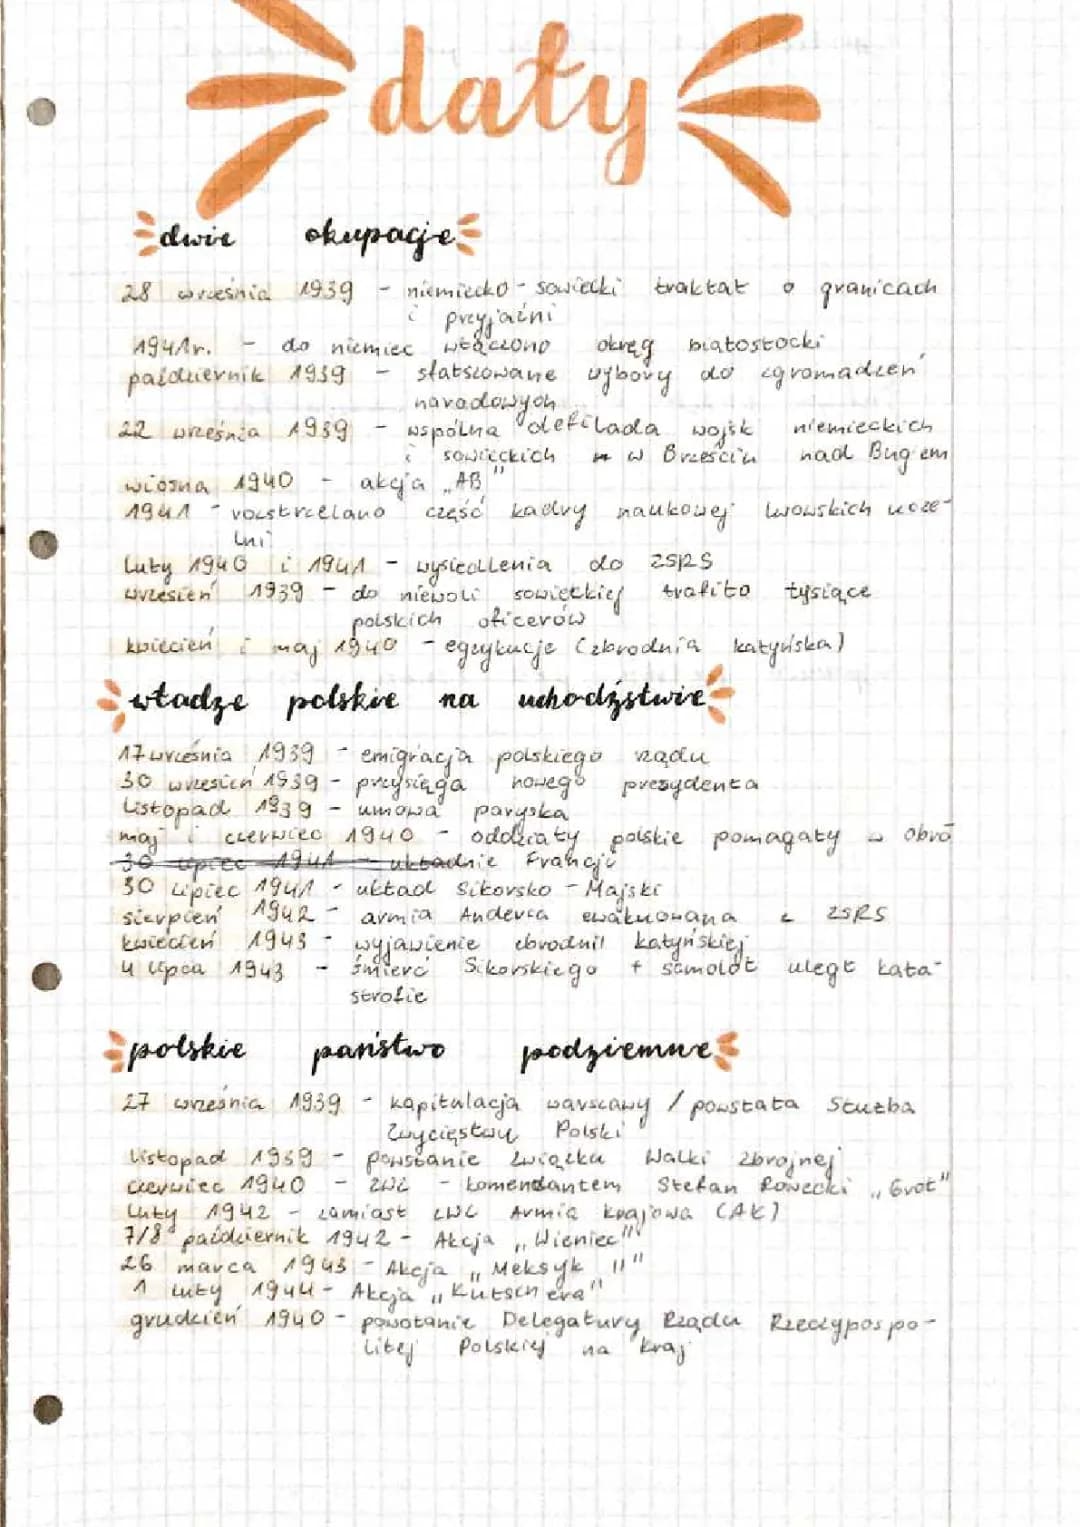 daty
dwie okupacje
28 września 1939 - niemiecko - sowiecki traktat o granicach
i przyjaźni
1941r. - do niemiec włączono okręg białostocki
październik 1939 - sfałszowane wybory do zgromadzeń
narodowych
22 września 1939 - wspólna defilada wojsk niemieckich
i sowieckich w Brześciu nad Bugiem
wiosna 1940 - akcja „AB"
1941 - rozstrzelano część kadry naukowej lwowskich ucze-
lni
luty 1940 i 1941 - wysiedlenia do ZSRS
wrzesień 1939 - do niewoli sowieckiej trafiło tysiące
polskich oficerów
kwiecień i maj 1940 - egzykucje (zbrodnia katyńska)
władze polskie na uchodźstwie
17 września 1939 - emigracja polskiego rządu
30 wrzesień 1939 - przysięga nowego prezydenta
listopad 1939 - umowa paryska
maj i czerwiec 1940 - oddziały polskie pomagały w obro
30 lipiec 1941 - układnie Francji
30 lipiec 1941 - układ Sikorsko - Majski
sierpień 1942 - armia Andersa ewakuowana z ZSRS
kwiecień 1943 - wyjawienie zbrodnii katyńskiej
4 lipca 1943 - śmierć Sikorskiego + samolot uległ kata-
strofie
polskie państwo podziemne
27 września 1939 - kapitulacja warszawy / powstała Służba
Zwycięstwu Polski
listopad 1939 - powstanie Związku Walki Zbrojnej
czerwiec 1940 - ZWZ - komendantem Stefan Rowecki „Grot"
luty 1942 - zamiast ZWZ Armia krajowa (AK)
7/8 październik 1942 - Akcja „Wieniec"
26 marca 1943 - Akcja „Meksyk II"
1 luty 1944 - Akcja „Kutschera"
grudzień 1940 - powołanie Delegatury Rządu Rzeczypospo-
litej Polskiej na kraj